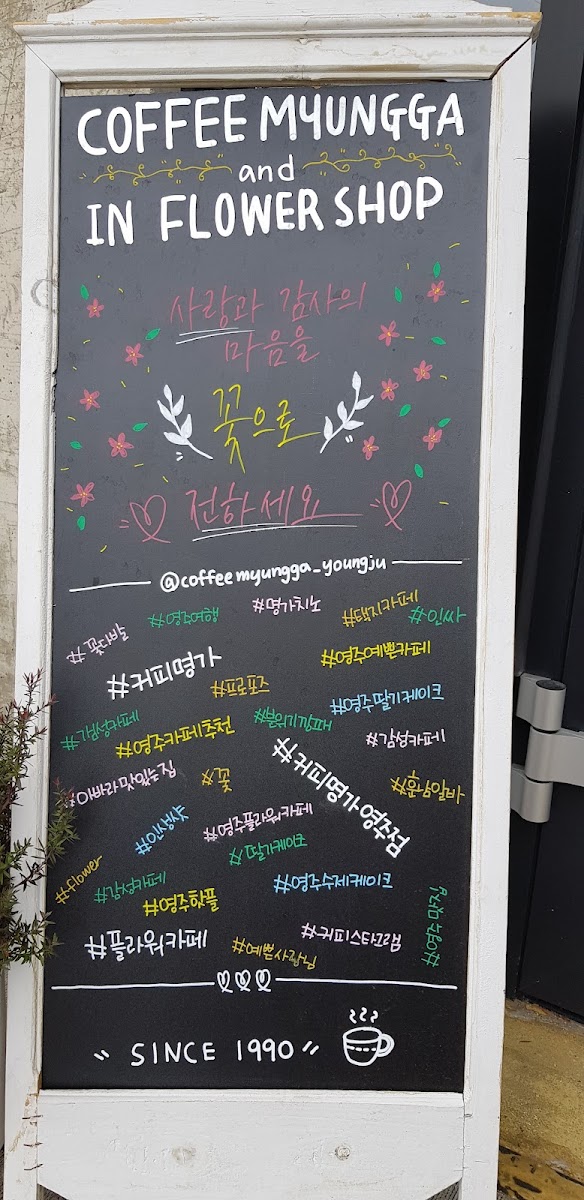 COFFEE MYUNGGA
and
IN FLOWER SHOP
사랑과 감사의
마음을
꽃으로
전하세요
@coffeemyungga_youngju
#꽃다발
#영주여행
#명가치노
#택지카페
#인싸
#커피명가
#프로포즈
#영주예쁜카페
#감성카페
#영주카페추천
#분위기깡패
#영주딸기케이크
#감성카페
#아빠라맛있는집
#꽃
#커피명가영주점
#훈남알바
#인생샷
#영주플라워카페
#딸기케이크
#flower
#감성카페
#영주핫플
#영주수제케이크
#플라워카페
#예쁜사장님
#커피스타그램
SINCE 1990